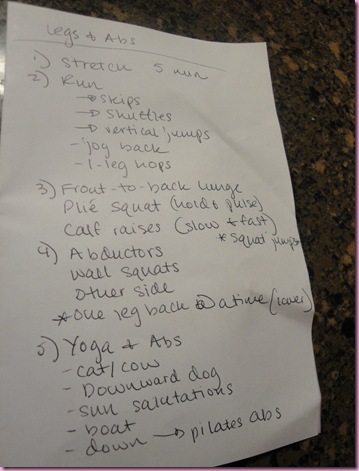 Legs & Abs
1) Stretch 5 min
2) Run
→ skips
→ shuttles
→ vertical jumps
- jog back
- 1-leg hops
3) Front-to-back lunge
Plié squat (hold & pulse)
Calf raises (slow & fast)
* squat jumps
4) Abductors
Wall squats
Other side
* One leg back @ a time (lower)
5) Yoga & Abs
- cat/cow
- Downward dog
- sun salutations
- boat
- down → pilates abs